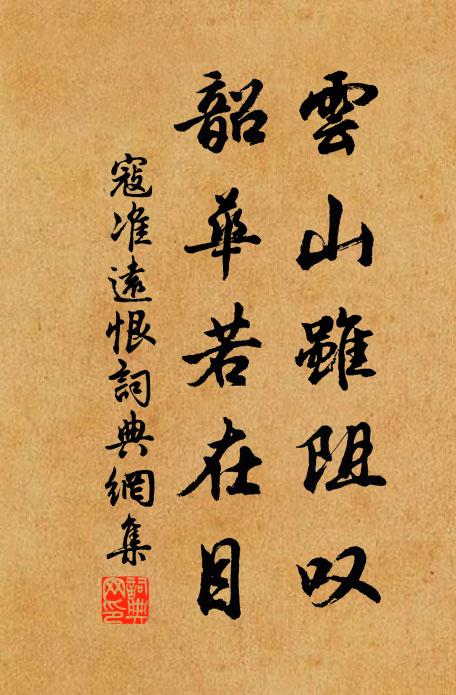 雲山雖阻叹
韶華若在目
寇准遠恨詞典網集
詞典
网印